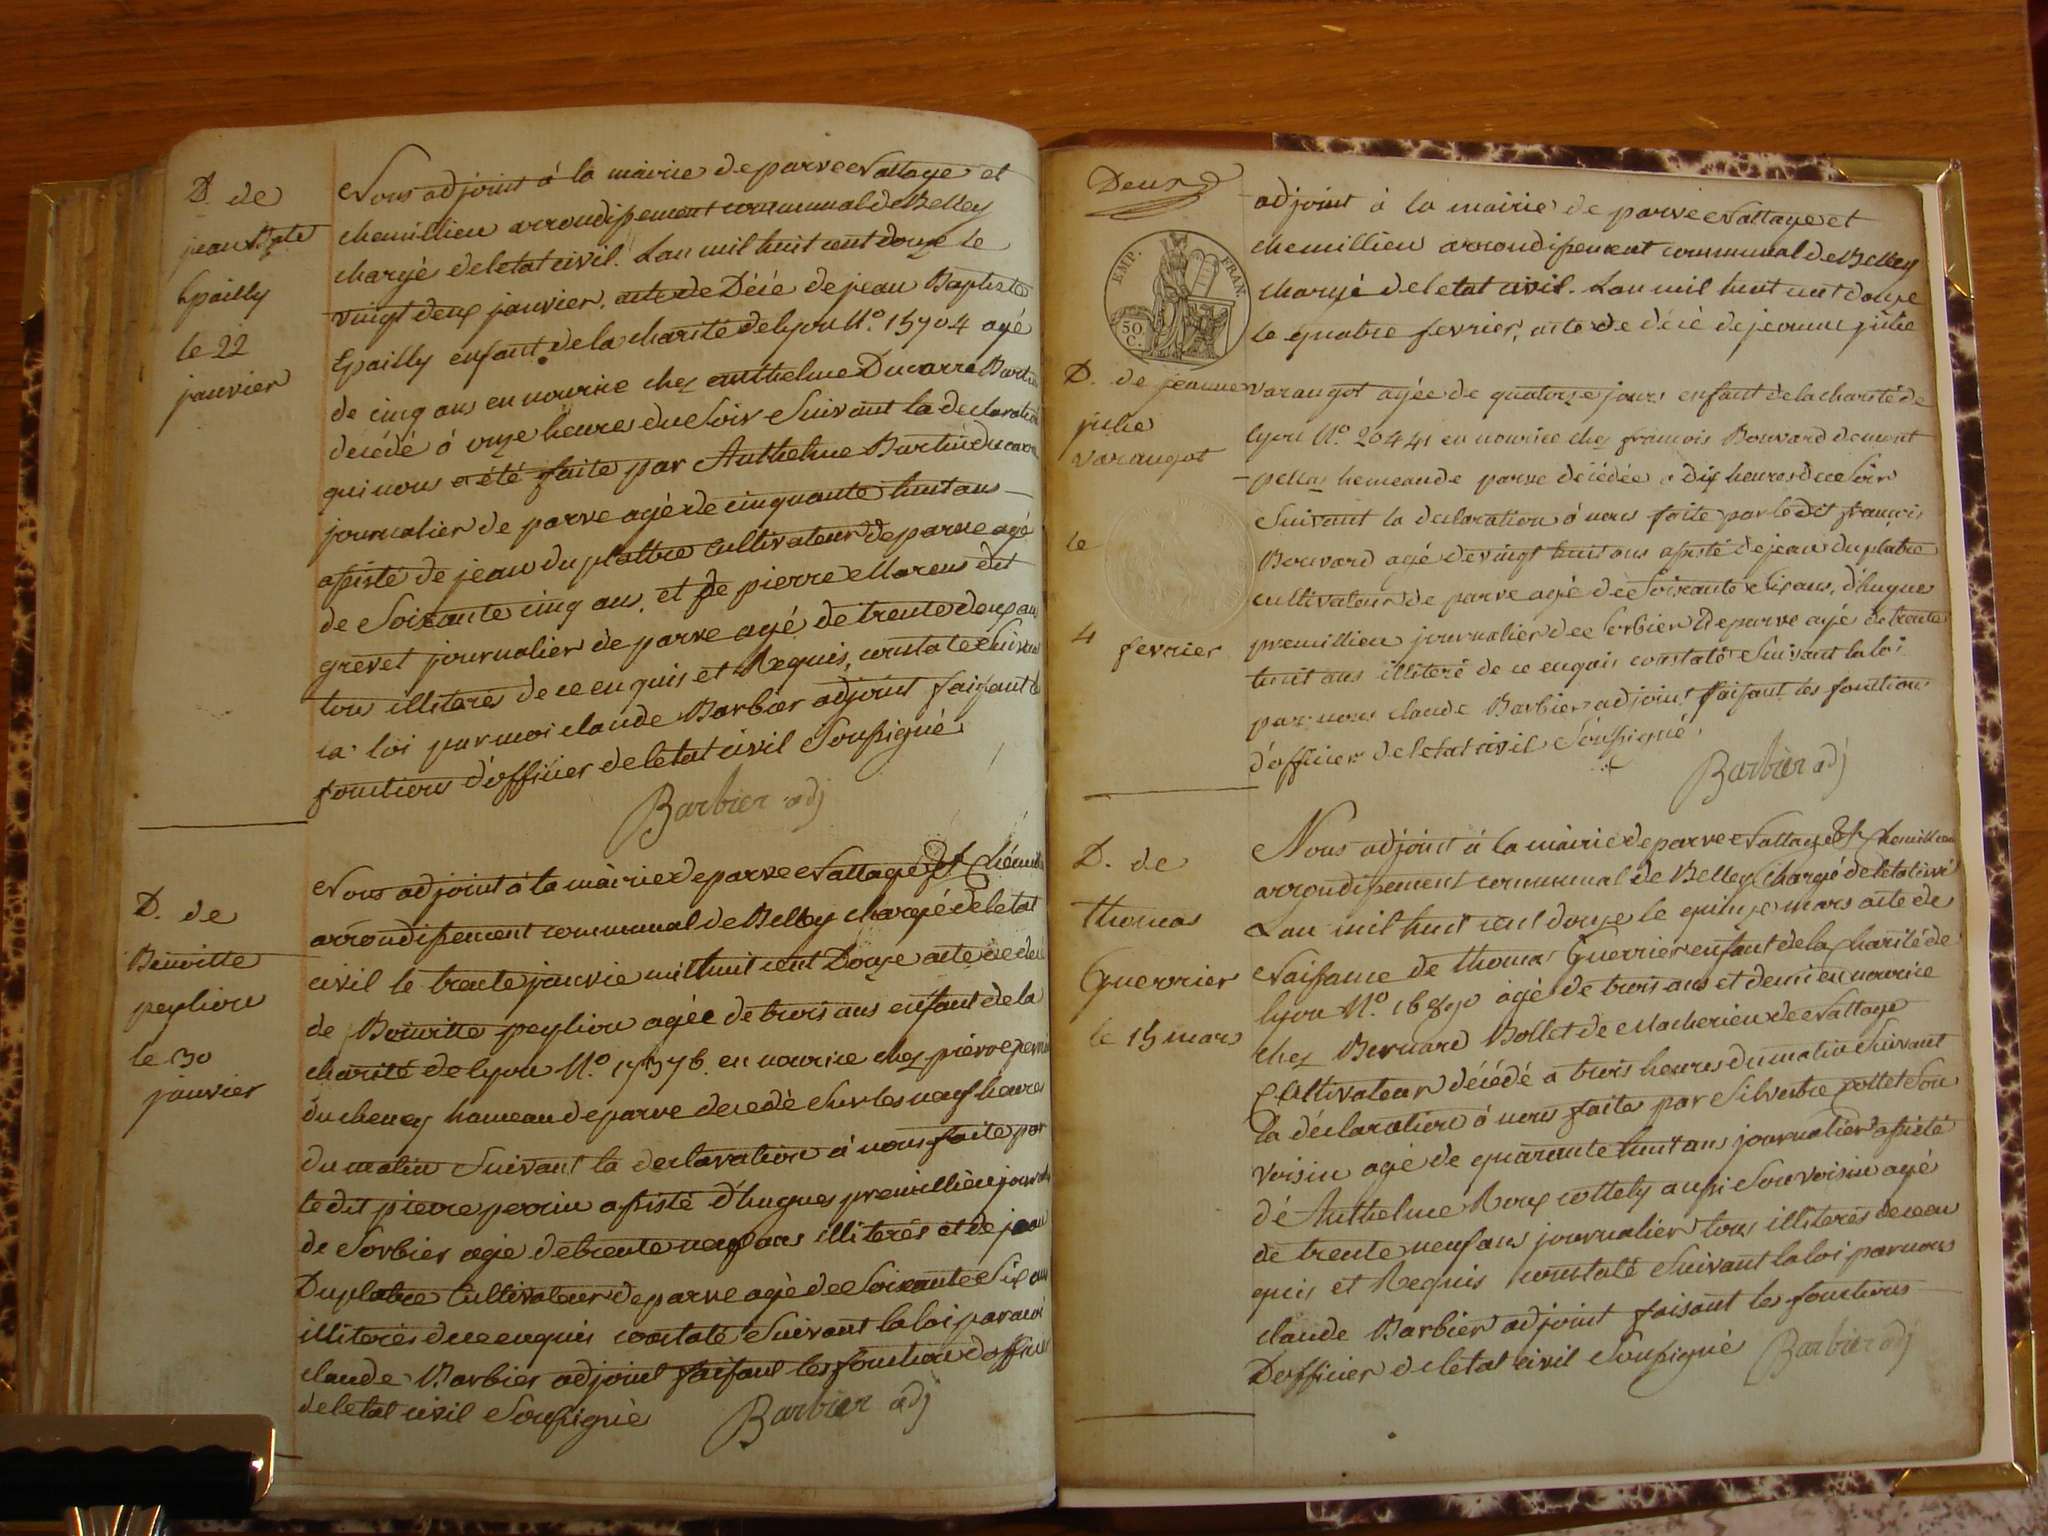 D. de
jean Bpte
Epailly
le 22
janvier
Nous adjoint à la mairie de parve Nattage et
chemillieu arrondissement communal de Belley
chargé de letat civil. Lan mil huit cent douze le
vingt deux janvier, acte de Décé de jean Baptiste
Epailly enfant de la charité de lyon N.o 15704 agé
de cinq ans en nourice chez anthelme Ducarre
décédé à onze heures du Soir Suivant la declaration
qui nous a été faite par Anthelme
journalier de parve agé de cinquante huit ans
assisté de jean duplattre Cultivateur de parve agé
de Soixante cinq ans, et de pierre Marens dit
grevet journalier de parve agé de trente deux ans
tous illiteres de ce enquis et Requis, constaté Suivant
la loi par moi claude Barbier adjoint faisant les
fonctions d'officier de letat civil Soussigné
Barbier adj
D. de
Benoitte
peylion
le 30
janvier
Nous adjoint à la mairie de parve Nattage Et Chémillieu
arrondissement communal de Belley chargé de letat
civil le trente janvie mil huit cent Douze acte de
de Benoitte peylion agée de trois ans enfant de la
charité de lyon N.o 17376 en nourice chez pierre perrin
du cheney hameau de parve decedé Sur les neuf heures
du matin Suivant la declaration à nous faite par
le dit pierre perrin assisté d'hugues premillieu
de Sorbier agé de trente neuf ans illiterés et de jean
Duplatre Cultivateur de parve agé de Soixante Six ans
illiterés de ce enquis constaté Suivant la loi par moi
claude Barbier adjoint faisant les fonction d'officier
de letat civil Soussigné Barbier adj
Deux
EMP. FRAN.
50 C.
adjoint à la mairie de parve Nattage et
chemillieu arrondissement communal de Belley
chargé de letat civil. Lan mil huit cent douze
le quatre fevrier, acte de décé de jeanne julie
D. de jeanne
julie
varangot
le
4 fevrier
varangot agée de quatorze jours enfant de la charité de
lyon N.o 20441 en nourice chez francois Bouvard de mont
pellas hemeau de parve décédée a Dix heures du Soir
Suivant la declaration à nous faite par le dit françois
Bouvard agé de vingt huit ans assisté de jean duplatre
cultivateur de parve agé de Soixante Six ans, d'hugue
premillieu journalier de Sorbier De parve agé de trente
huit ans illiteré de ce enquis constaté Suivant la loi
par nous claude Barbier adjoint faisant les fonction
d'officier de letat civil Soussigné.
Barbier adj
D. de
thomas
Guerrier
le 15 mars
Nous adjoint à la mairie de parve Nattage Et Chemillieu
arrondissement communal de Belley Chargé de letat civil
Lan mil huit cent douze le quinze mars acte de
Naissance de thomas Guerrier enfant de la Charité de
lyon N.o 16890 agé de trois ans et demi en nourice
chez Bernard Bollet de Macherieu de Nattage
Cultivateur décédé a trois heures du matin Suivant
la déclaration à nous faite par Silvestre Son
voisin agé de quarante huit ans journalier assisté
dé Anthelme Roux cottely aussi Son voisin agé
de trente neuf ans journalier tous illiterés de ce en
quis et Requis constaté Suivant la loi par nous
claude Barbier adjoint faisant les fonctions
D'officier de letat civil Soussigné Barbier adj